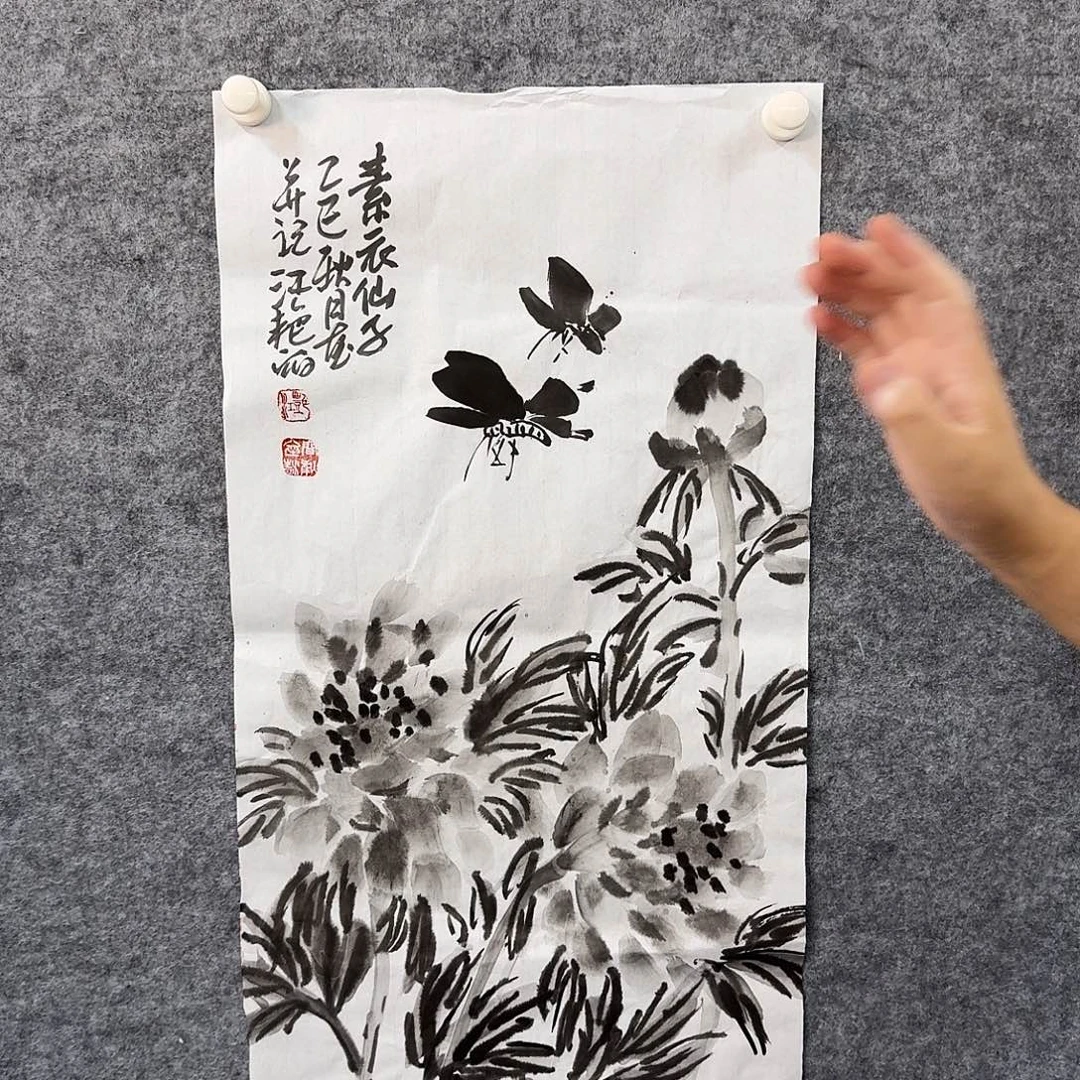 素衣仙子
乙巳秋月画
并记汪艳丽